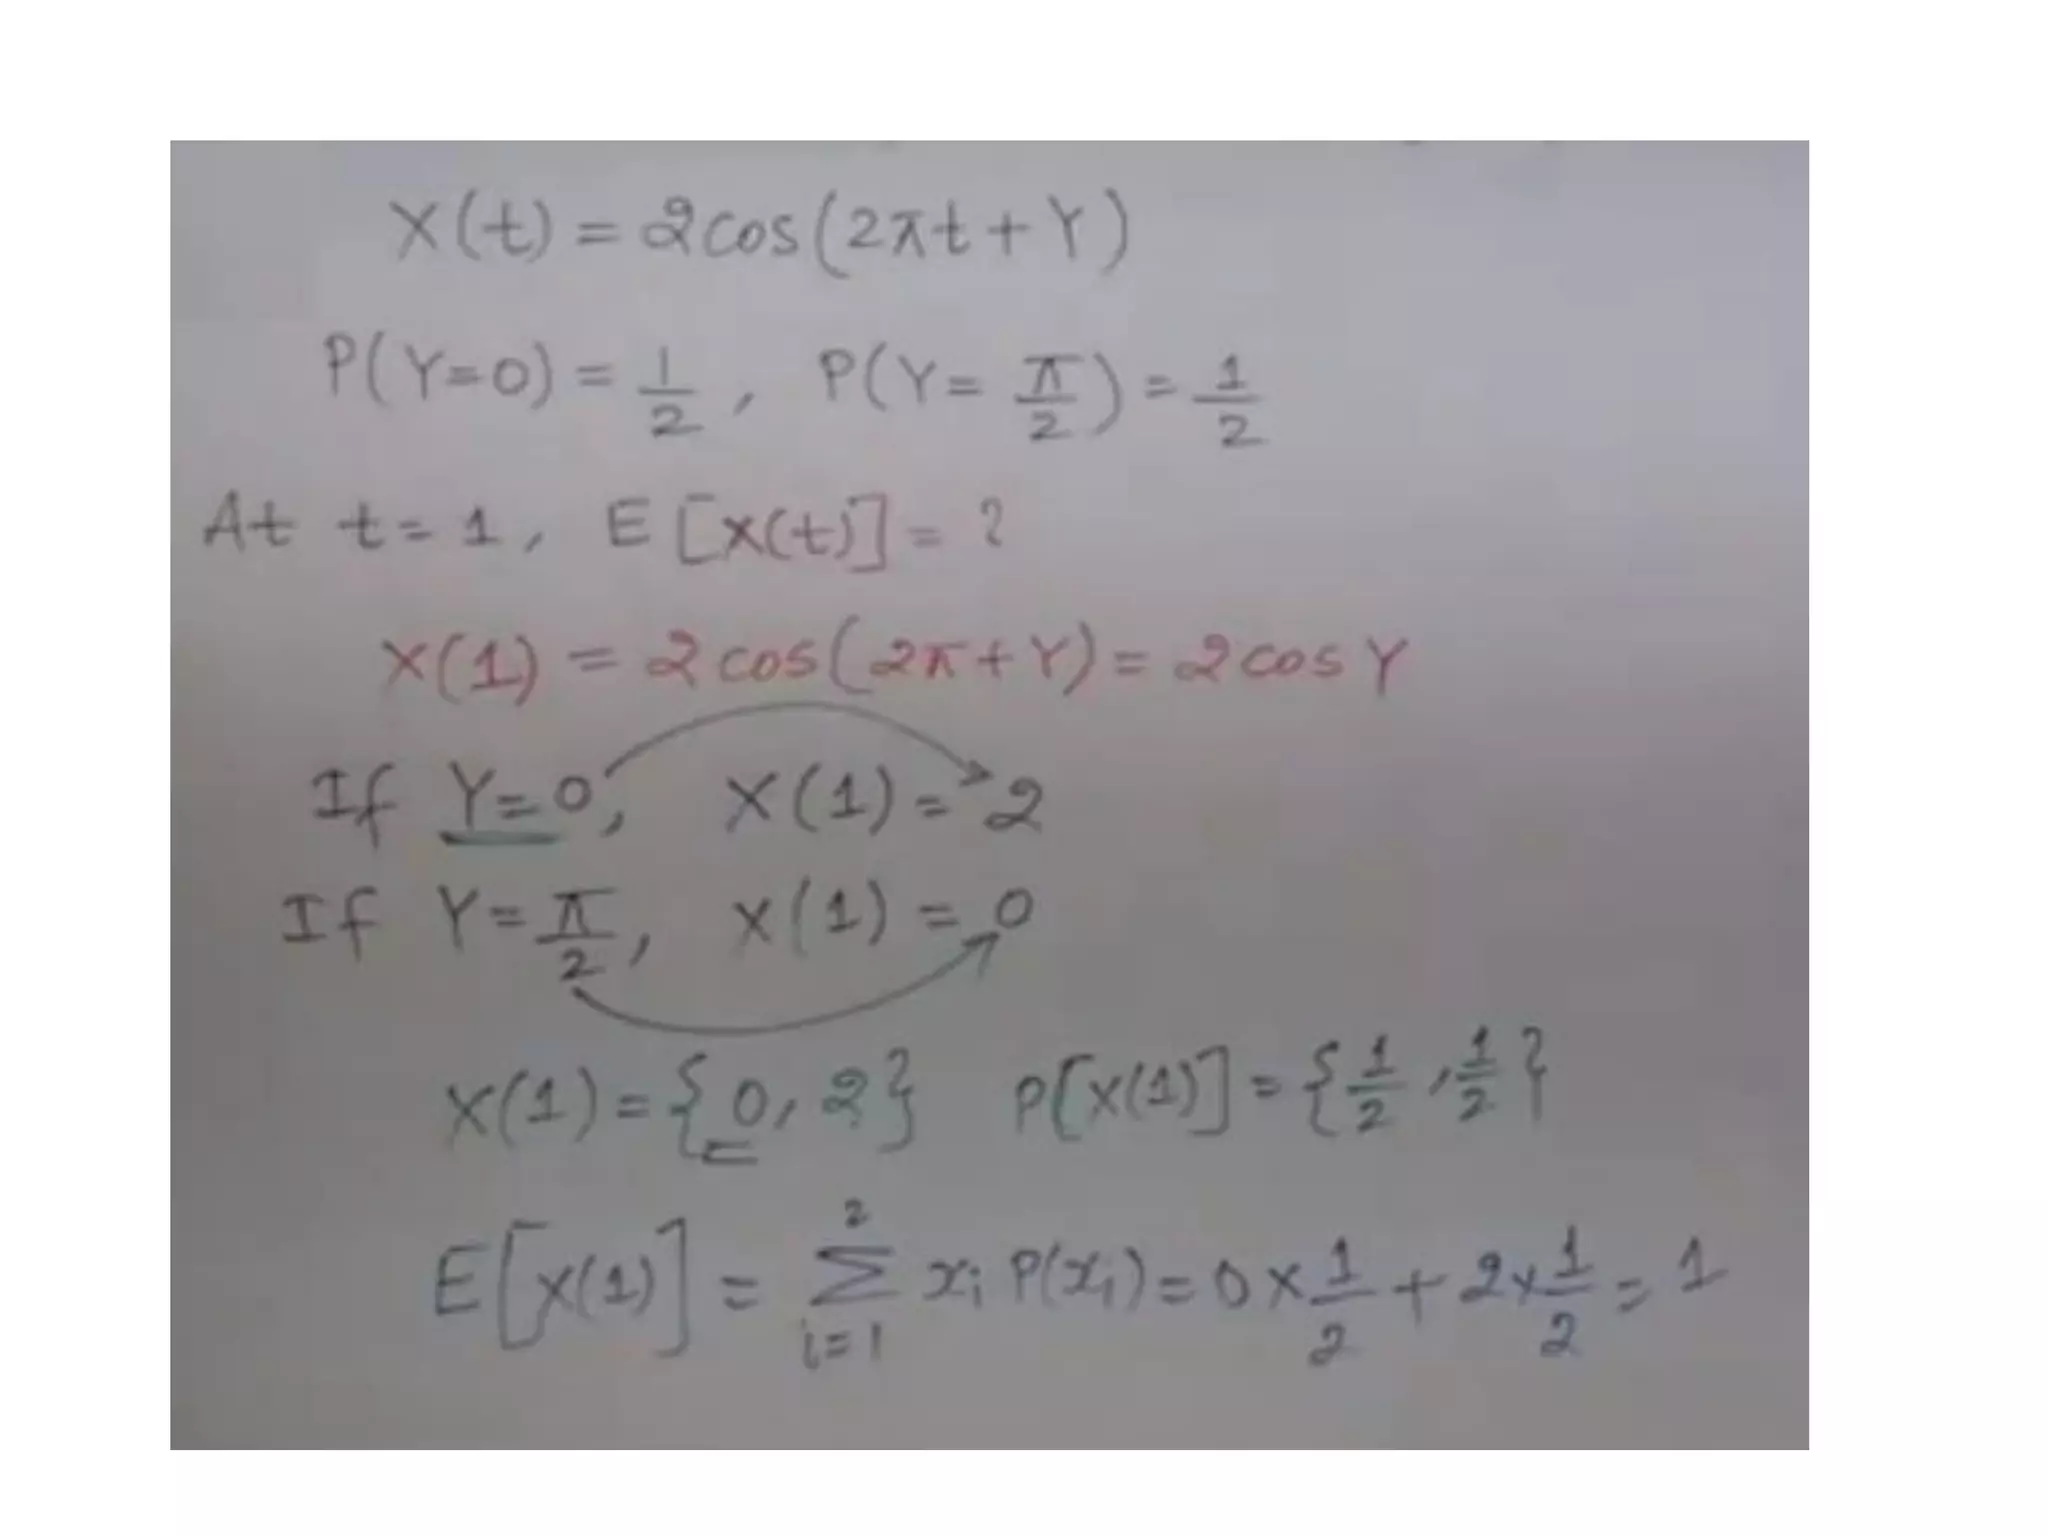 X(t) = 2cos(2πt + Y)
P(Y=0) = 1/2, P(Y= π/2) = 1/2
At t=1, E[X(t)] = ?
X(1) = 2cos(2π+Y) = 2cosY
If Y=0, X(1) = 2
If Y=π/2, X(1) = 0
X(1) = {0, 2} P[X(1)] = {1/2, 1/2}
E[X(1)] = ∑_{i=1}^{2} x_i P(x_i) = 0×1/2 + 2×1/2 = 1